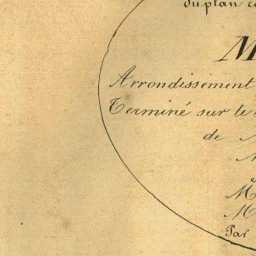 du plan
M
Arrondissement
Terminé sur le
de
M
M
Par